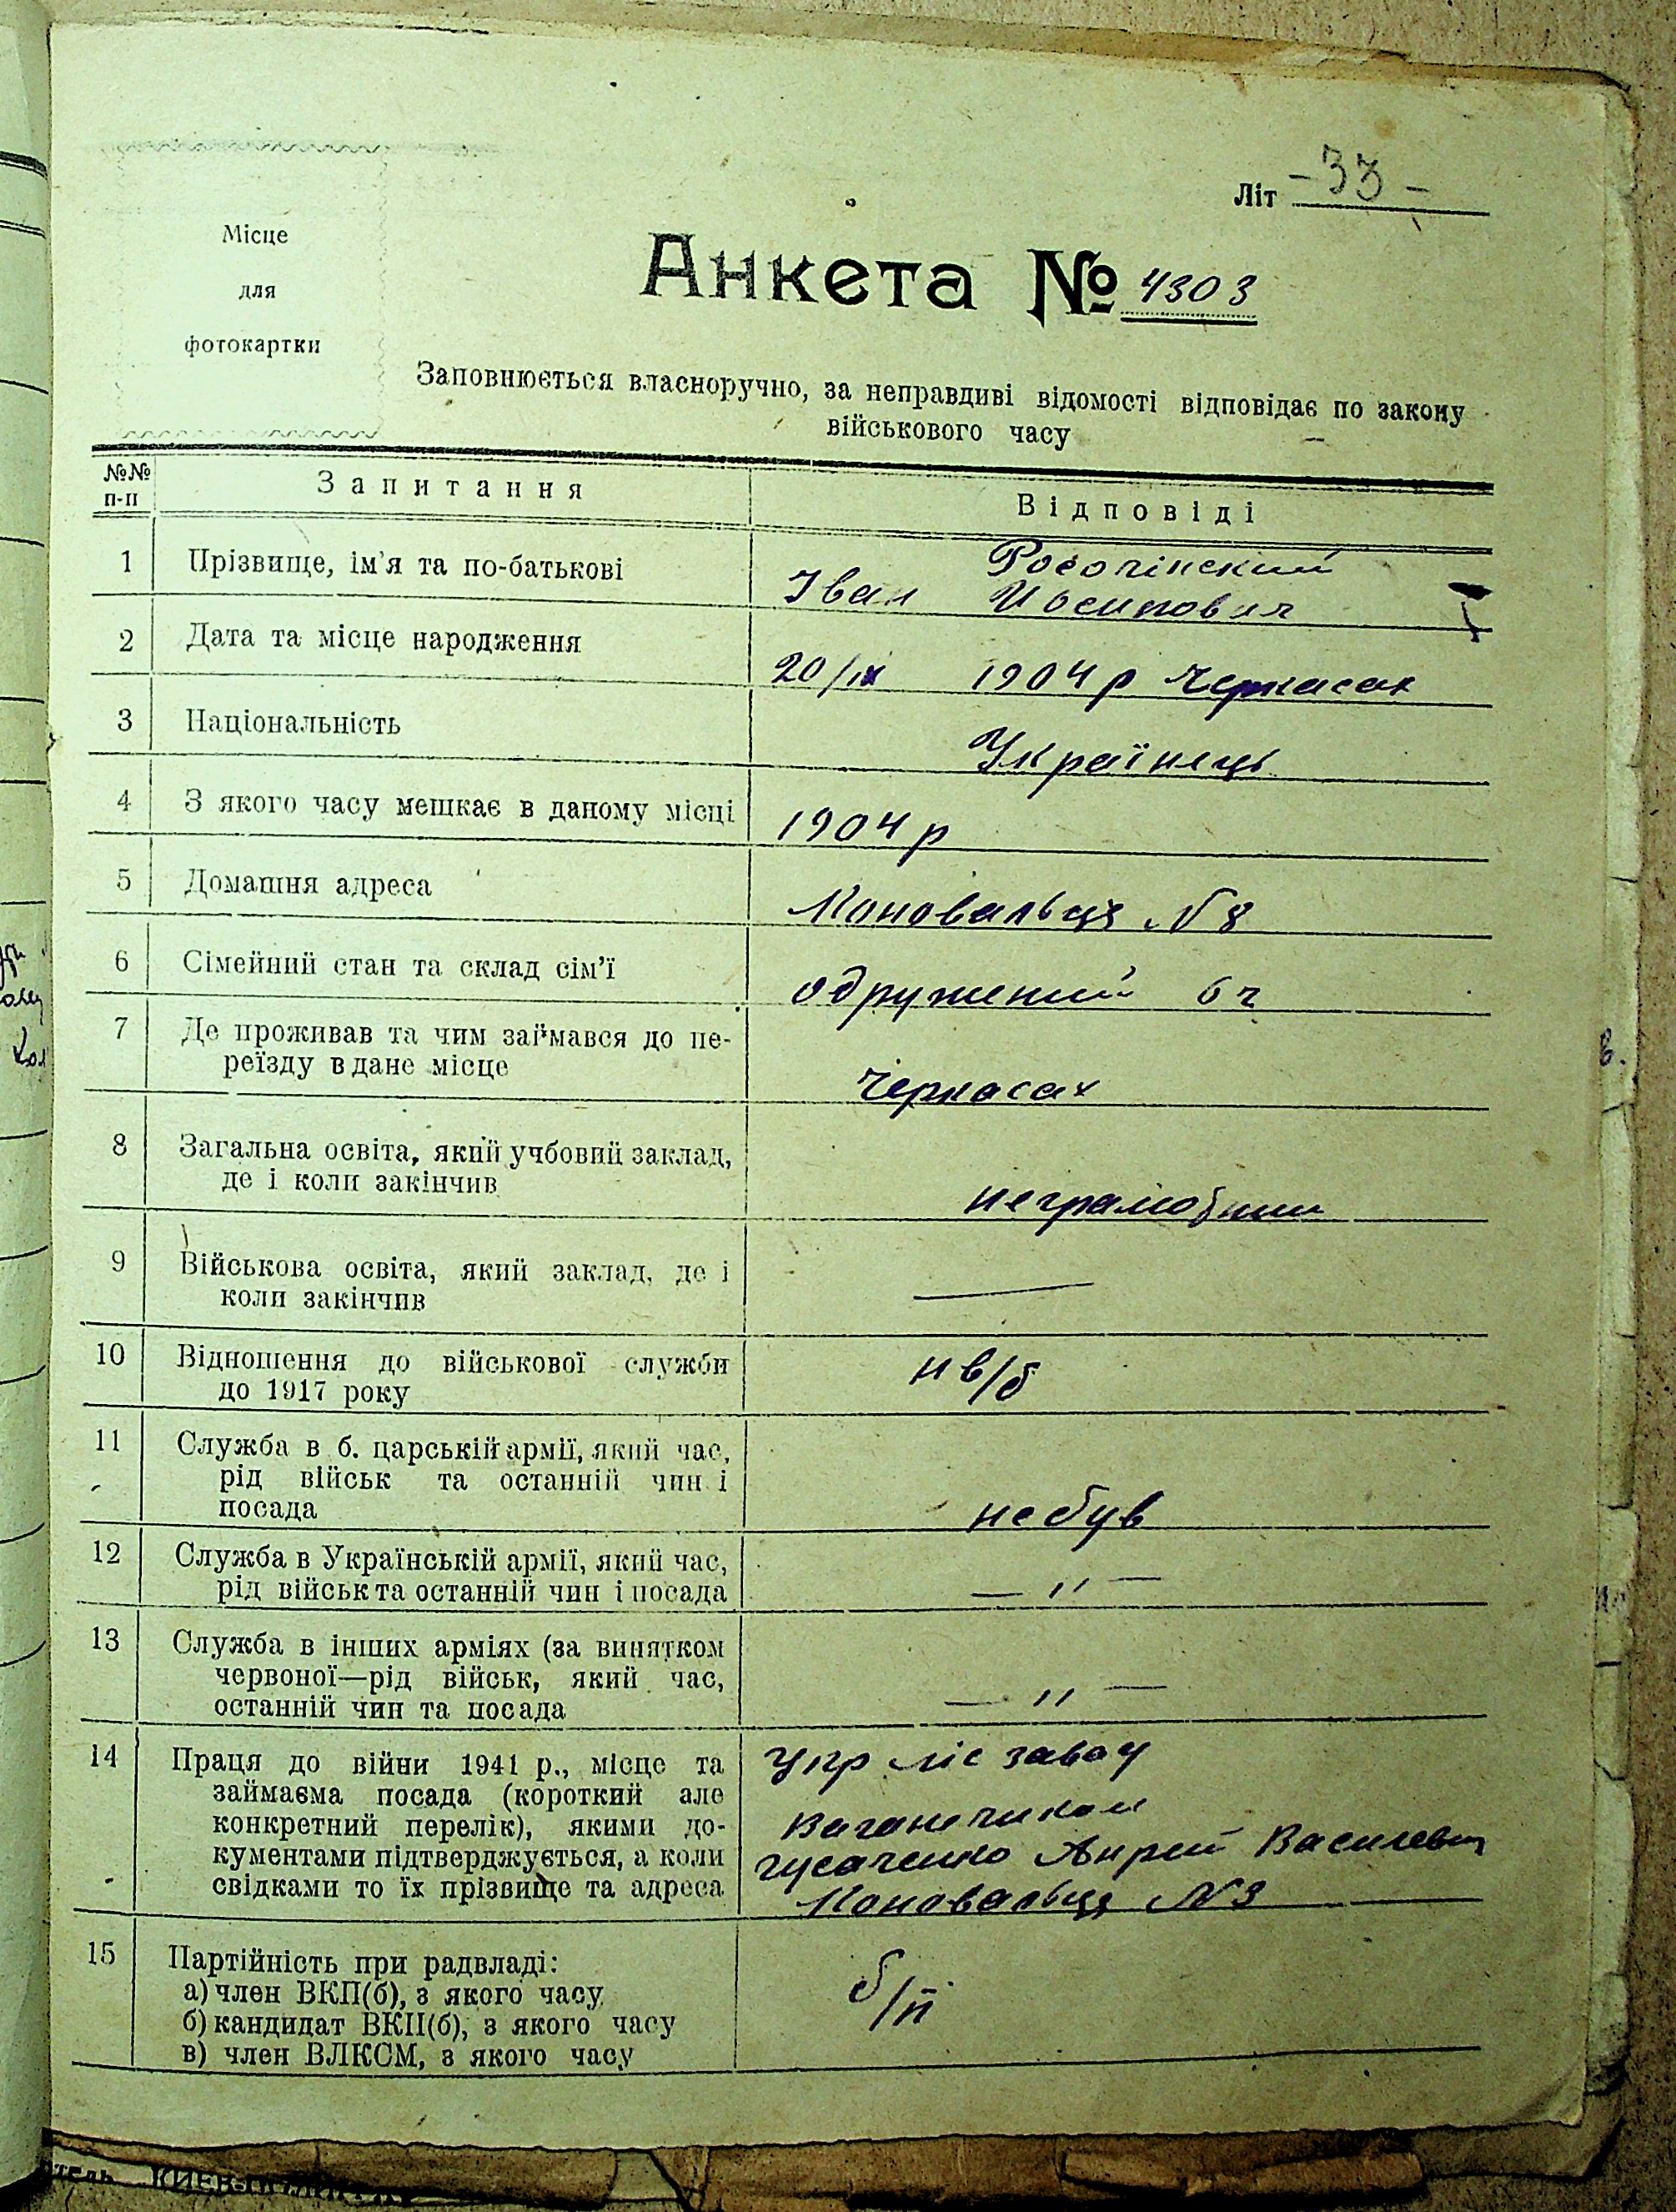 Літ -33-
Місце
для
фотокартки
Анкета № 4303
Заповнюється власноручно, за неправдиві відомості відповідає по закону
військового часу
№№ п-п Запитання Відповіді
1 Прізвище, ім'я та по-батькові
Росочінский
Іван Иосипович
2 Дата та місце народження
20/ІХ 1904 р Черкасах
3 Національність
Українець
4 З якого часу мешкає в даному місці
1904 р
5 Домашня адреса
Коновальця N 8
6 Сімейний стан та склад сім'ї
одружений 6 ч
7 Де проживав та чим займався до пе-
реїзду в дане місце
Черкасах
8 Загальна освіта, який учбовий заклад,
де і коли закінчив
неграмотний
9 Військова освіта, який заклад, де і
коли закінчив
—
10 Відношення до військової служби
до 1917 року
н в/б
11 Служба в б. царській армії, який час,
рід військ та останній чин і
посада
не був
12 Служба в Українській армії, який час,
рід військ та останній чин і посада
— " —
13 Служба в інших арміях (за винятком
червоної—рід військ, який час,
останній чин та посада
— " —
14 Праця до війни 1941 р., місце та
займаєма посада (короткий але
конкретний перелік), якими до-
кументами підтверджується, а коли
свідками то їх прізвище та адреса
Укр ліс завод
Ваганетчиком
Гусаченко Андрей Василевич
Коновальця N 3
15 Партійність при радвладі:
а) член ВКП(б), з якого часу
б) кандидат ВКП(б), з якого часу
в) член ВЛКСМ, з якого часу
б/п